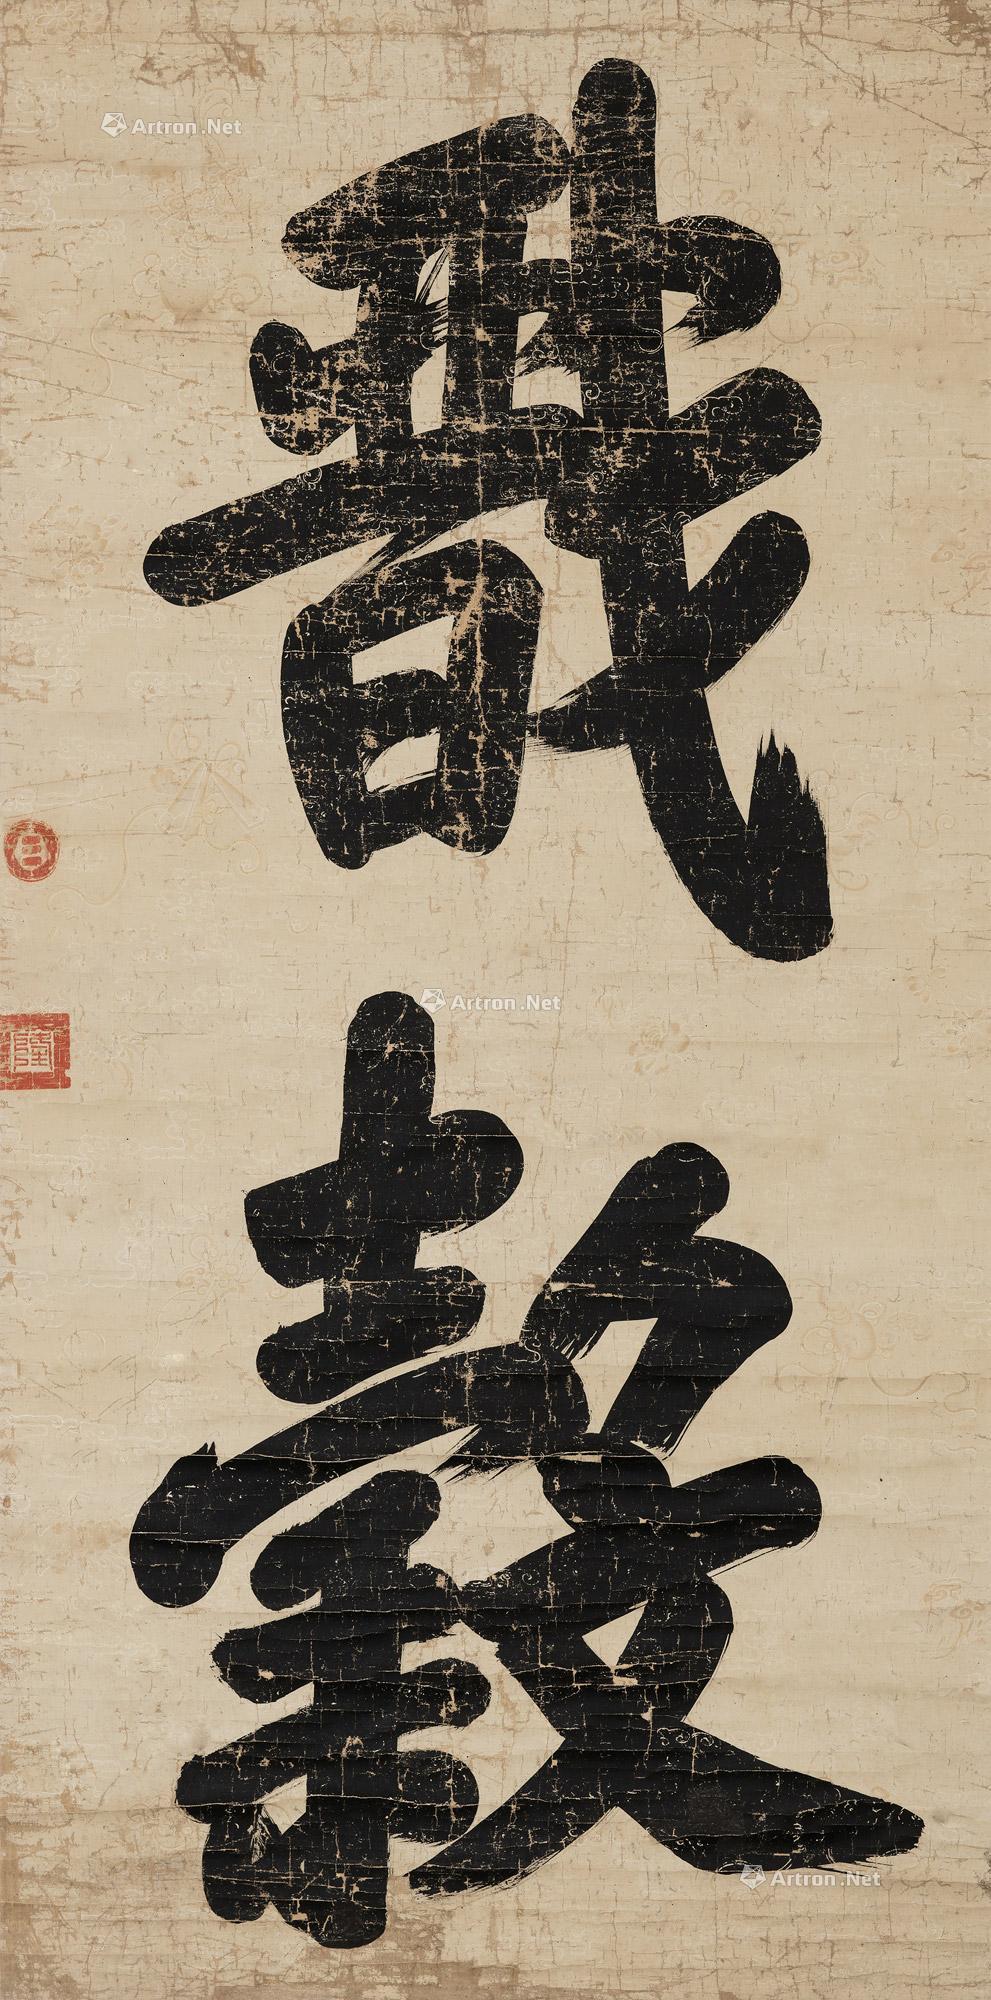 戩穀
Artron.Net
Artron.Net
Artron.Net